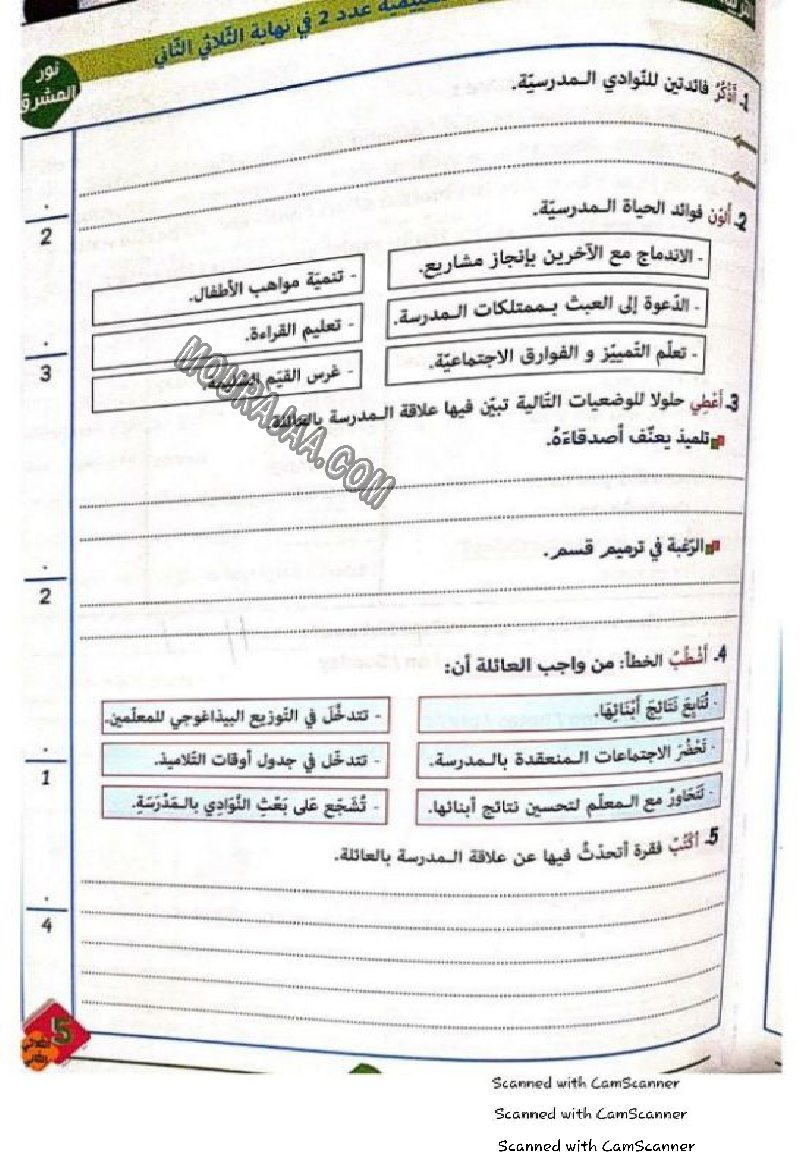 عدد 2 في نهاية الثّلاثي الثّاني
نور
المشرق
1. أَذْكُرُ فائدتين للنّوادي المدرسيّة.
2
2. أُلَوّن فوائد الحياة المدرسيّة.
- الاندماج مع الآخرين بإنجاز مشاريع.
- تنميّة مواهب الأطفال.
- الدّعوة إلى العبث بممتلكات المدرسة.
- تعليم القراءة.
- تعلّم التّمييّز و الفوارق الاجتماعيّة.
- غرس القيّم السّليمة.
3
3. أُعْطِي حلولا للوضعيات التّالية تبيّن فيها علاقة المدرسة بالعائلة.
تلميذ يعنّف أصدقاءَهُ.
الرّغبة في ترميم قسم.
2
4. أَشْطُبُ الخطأ: من واجب العائلة أن:
- تُتَابِعَ نَتَائِجَ أَبْنَائِهَا.
- تتدخّلَ في التّوزيع البيذاغوجي للمعلّمين.
- تَحْضُرَ الاجتماعات المنعقدة بالمدرسة.
- تتدخّل في جدول أوقات التّلاميذ.
- تَتَحَاوَرُ مع المعلّم لتحسين نتائج أبنائها.
- تُشَجّع عَلى بَعْثِ النَّوَادِي بالمَدْرَسَةِ.
1
5. أَكْتُبُ فقرة أتحدّثُ فيها عن علاقة المدرسة بالعائلة.
4
5
الثلاثي
الثاني
MOURAJAA.COM
Scanned with CamScanner
Scanned with CamScanner
Scanned with CamScanner